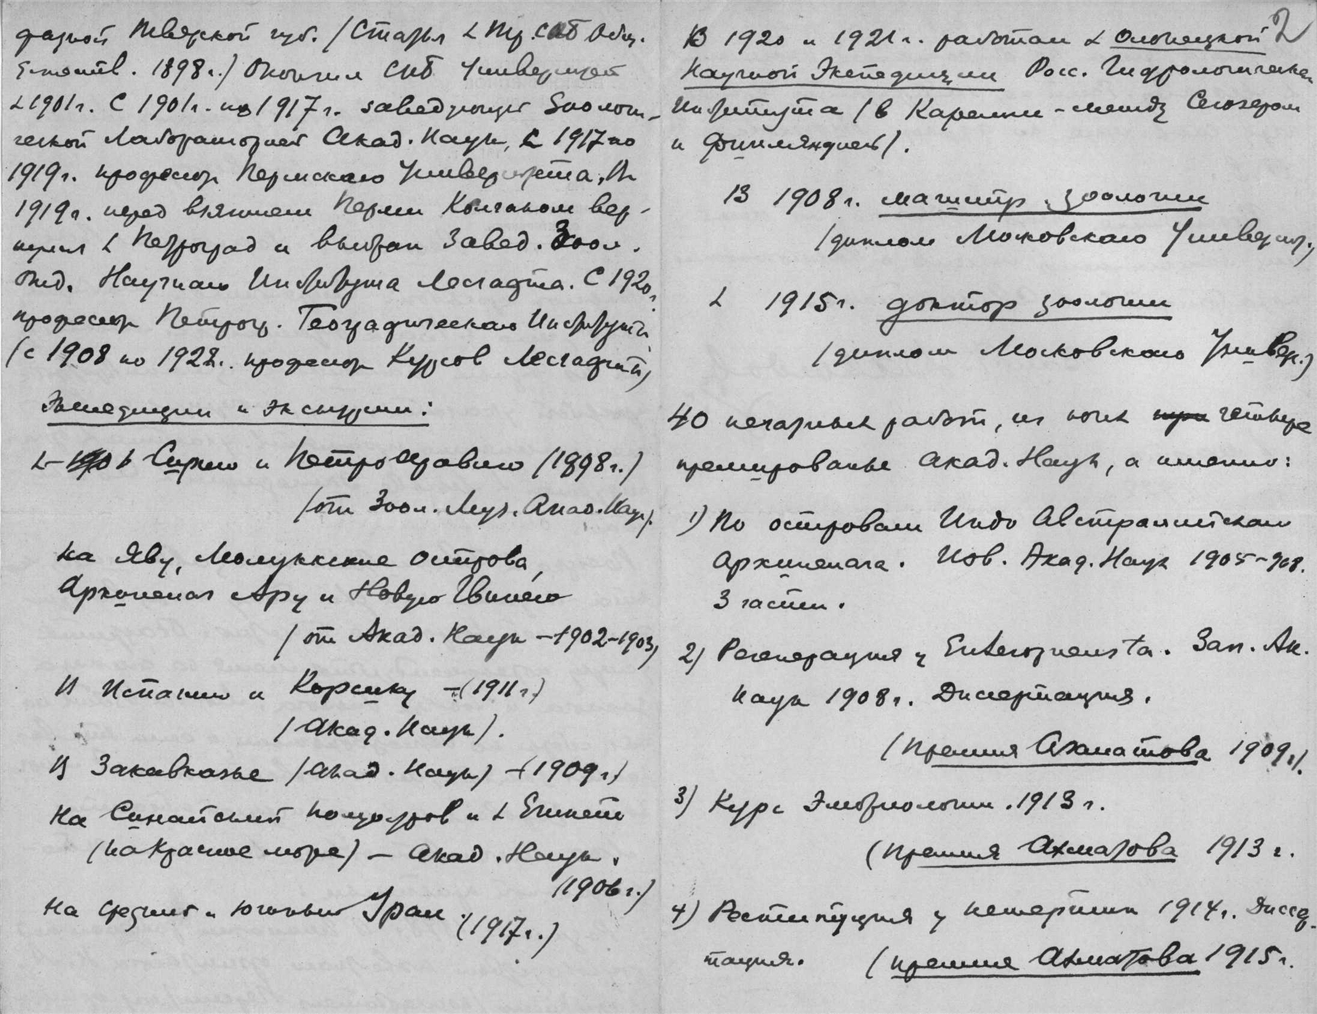 фауной Тверской губ. (Статья в Тр. СПБ Общ.
Естеств. 1898 г.) Окончил СПБ Университет
в 1901 г. С 1901 г. по 1917 г. заведующий Зоологи-
ческой Лабораторией Акад. Наук, с 1917 по
1919 г. профессор Пермского Университета, в
1919 г. перед взятием Перми Колчаком вер-
нулся в Петроград и выбран Завед. Зоол.
Отд. Научного Института Лесгафта. С 1920 г.
профессор Петрогр. Географического Института
(с 1908 по 1922 г. профессор Курсов Лесгафта)
Экспедиции и экскурсии:
в Сирию и (1898 г.)
(от Зоол. Муз. Акад. Наук).
На Яву, Молуккские острова,
Архипелаг Ару и Новую Гвинею
(от Акад. Наук – 1902–1903)
В Испанию и Корсику – (1911 г.)
(Акад. Наук).
В Закавказье (Акад. Наук) – (1909 г.)
На Синайский полуостров и в Египет
(на Красное море) – Акад. Наук.
(1906 г.)
На средний и южный Урал. (1917 г.)
2
В 1920 и 1921 г. работал в Олонецкой
Научной Экспедиции Росс. Гидрологическ.
Института (в Карелии – между Сегозером
и Финляндией).
В 1908 г. магистр зоологии
(диплом Московского Универ.)
в 1915 г. доктор зоологии
(диплом Московского Универ.)
40 печатных работ, из коих три четыре
премированы Акад. Наук, а именно:
1) По островам Индо Австралийского
Архипелага. Изв. Акад. Наук 1905–908.
3 части.
2) Регенерация у Enteropneusta. Зап. Ак.
Наук 1908 г. Диссертация.
(Премия Ахматова 1909 г.).
3) Курс Эмбриологии. 1913 г.
(Премия Ахматова 1913 г.
4) Реституция у немертин 1914 г. Диссер-
тация. (премия Ахматова 1915 г.